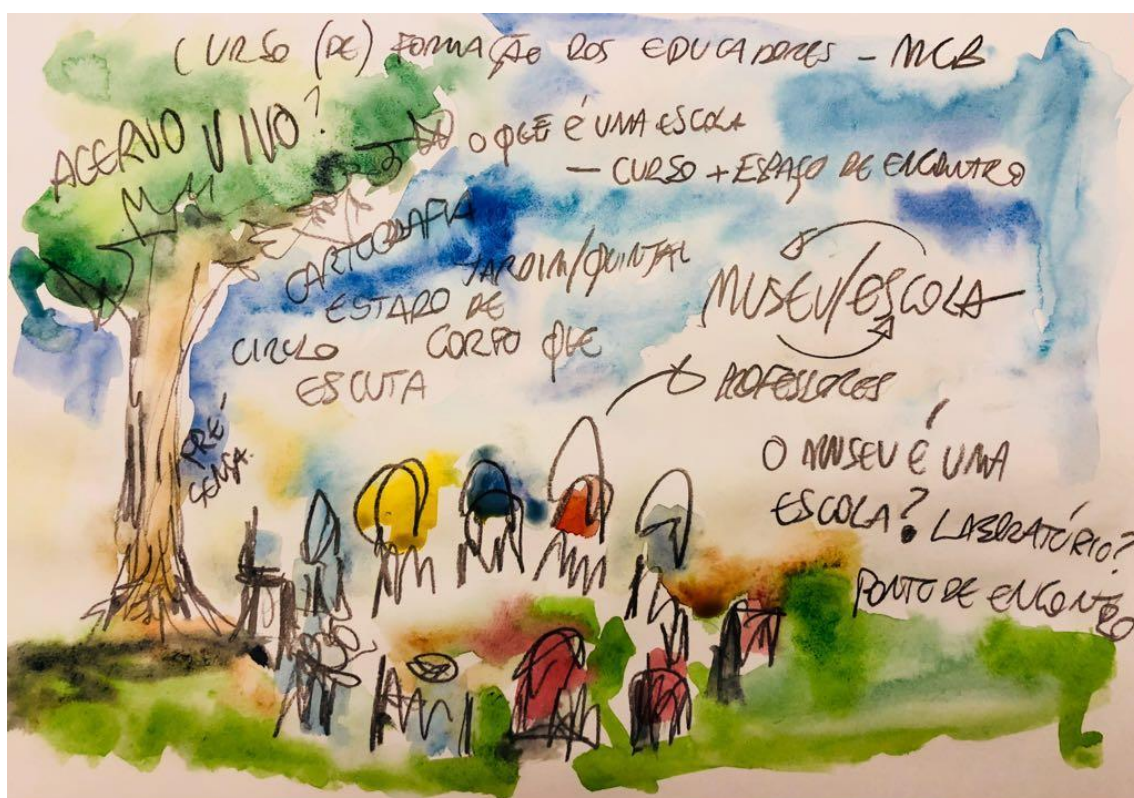 CURSO (DE) FORMAÇÃO DOS EDUCADORES - MCB
ACERVO VIVO?
O QUE É UMA ESCOLA
- CURSO + ESPAÇO DE ENCONTRO
CARTOGRAFIA
JARDIM/QUINTAL
ESTADO DE
CORPO QUE
ESCUTA
CIRCULO
MUSEU/ESCOLA
PROFESSORES
PRÉ-
CENSA.
O MUSEU É UMA
ESCOLA? LABORATÓRIO?
PONTO DE ENCONTRO